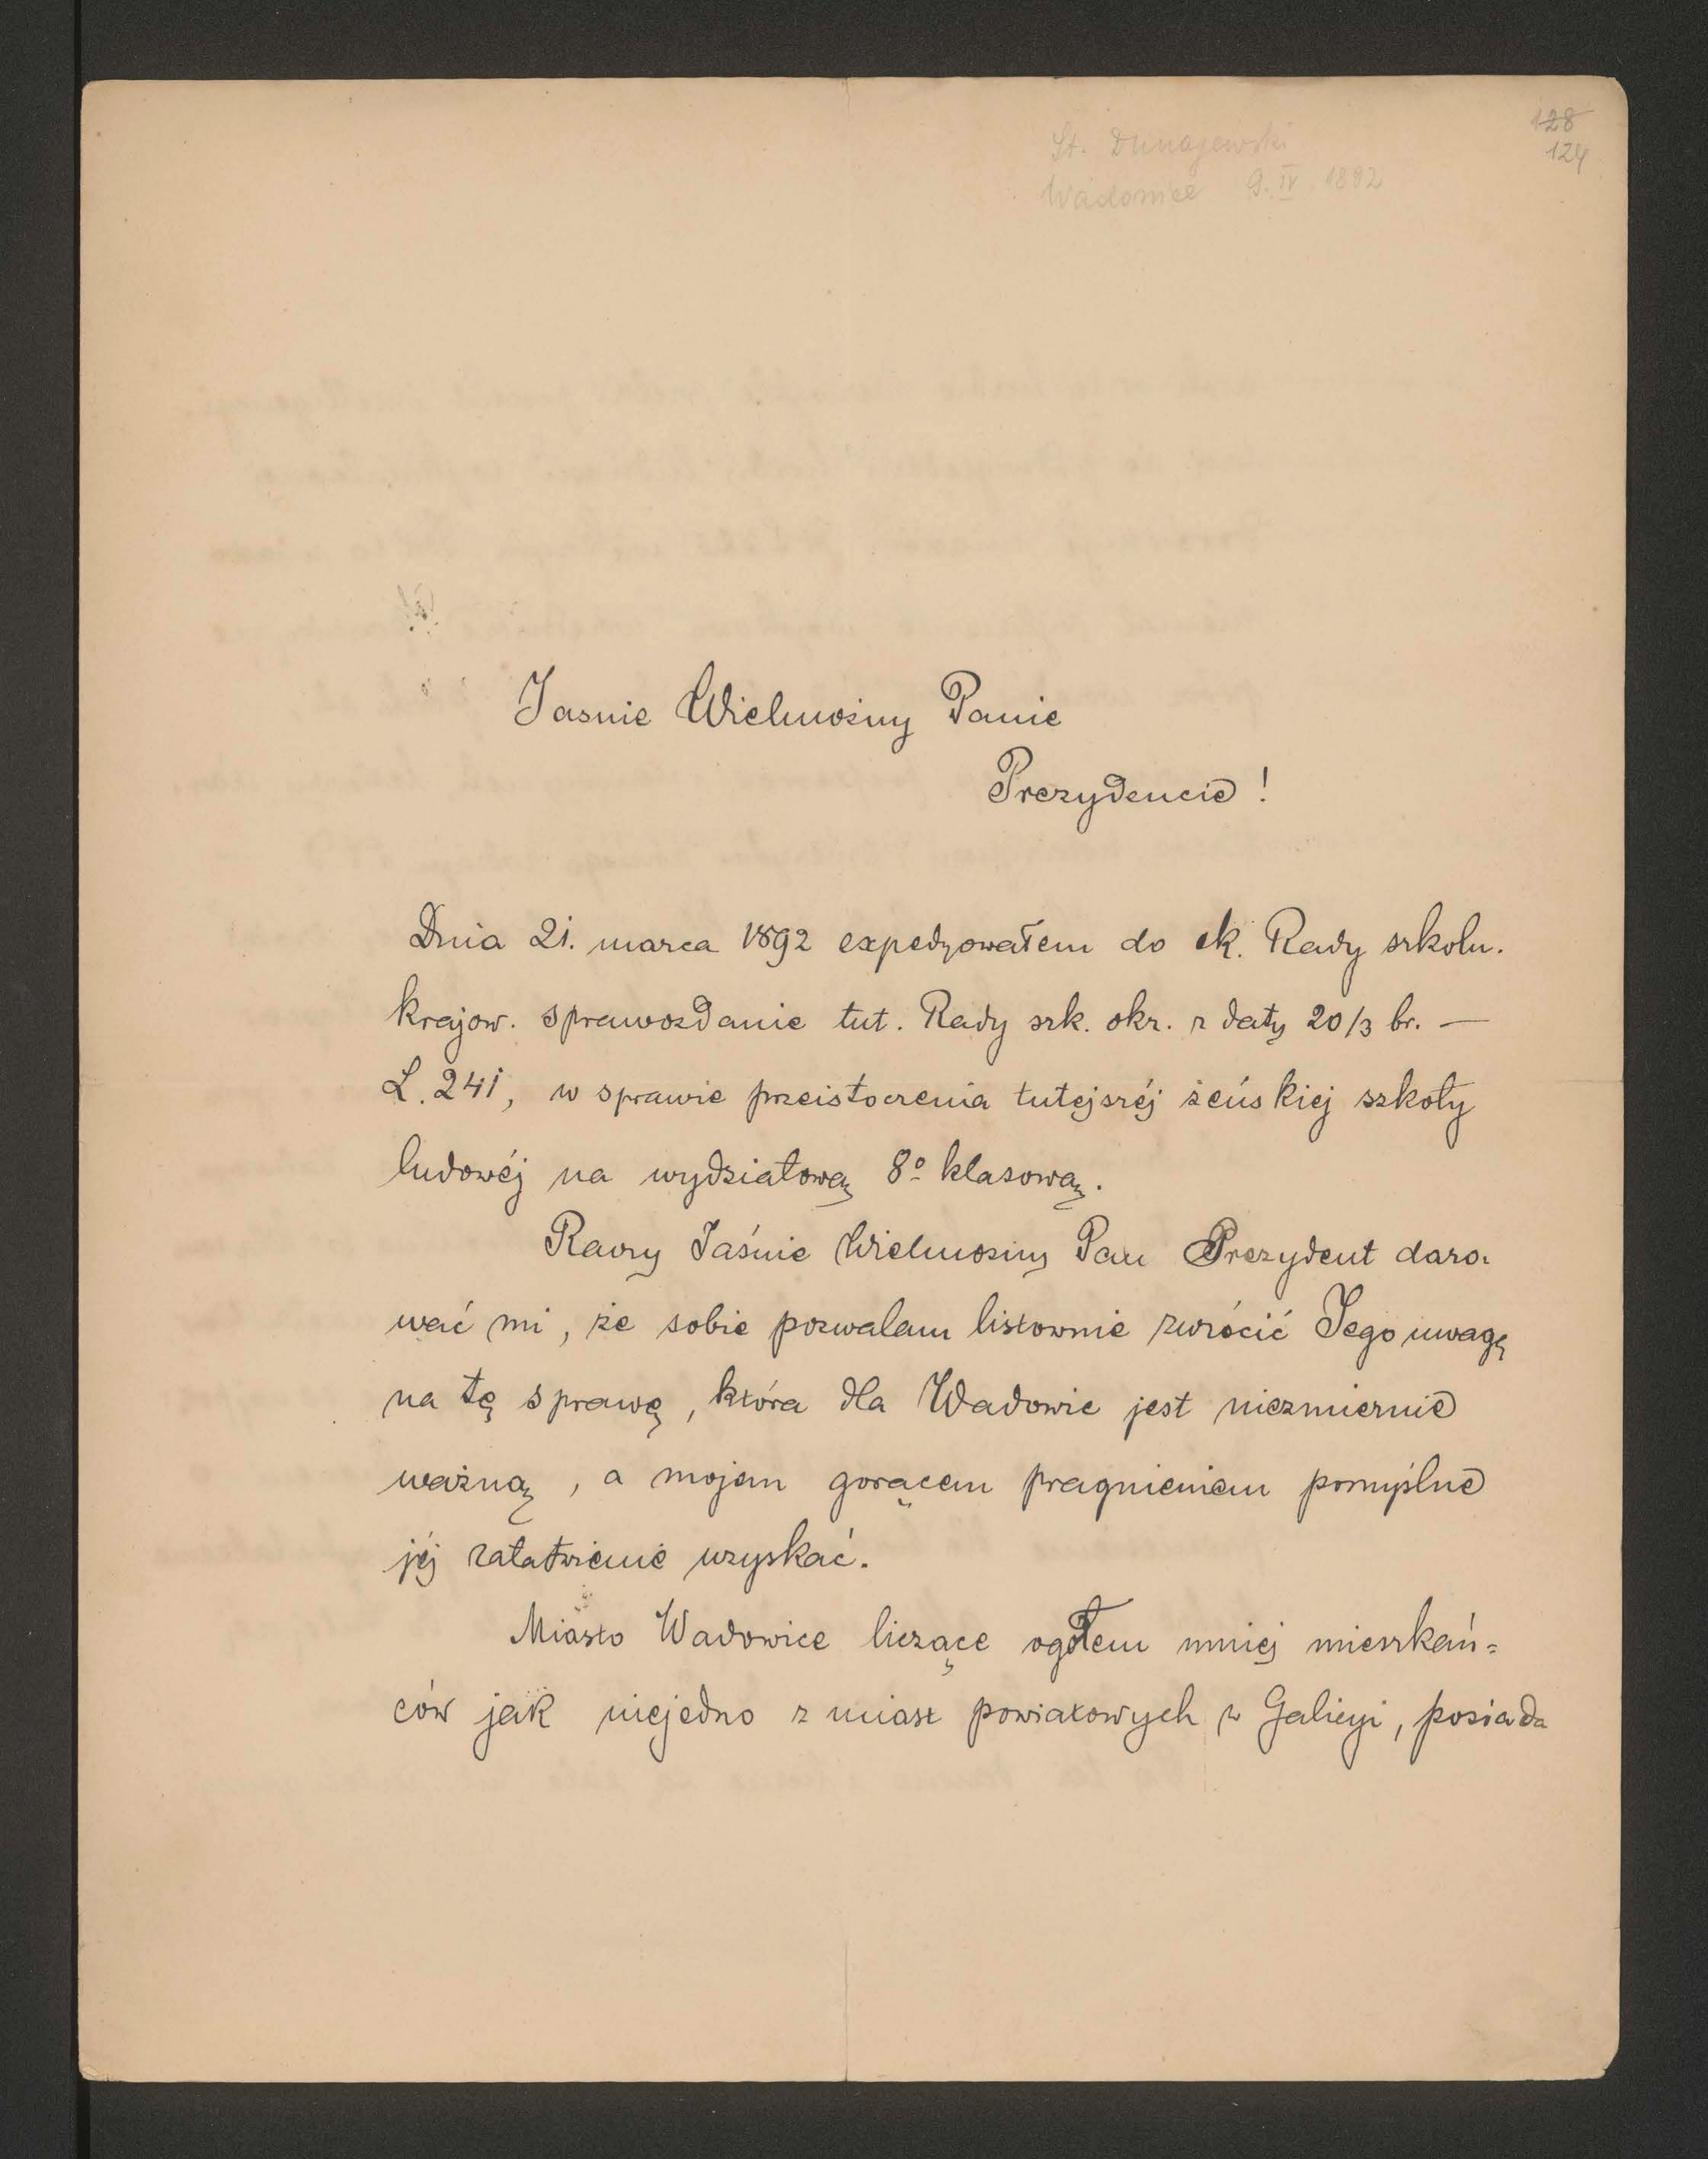 128
124
St. Dunajewski
Wadowice 9. IV. 1892
Jasnie Wielmożny Panie
Prezydencie!
Dnia 21. marca 1892 expedyowałem do ck. Rady szkoln.
krajow. sprawozdanie tut. Rady szk. okr. z daty 20/3 br. —
L. 241, w sprawie przeistoczenia tutejszéj żeńskiej szkoły
ludowéj na wydziałową 8o klasową.
Raczy Jaśnie Wielmożny Pan Prezydent daro-
wać mi, że sobie pozwalam listownie zwrócić Jego uwagę
na tę sprawę, która dla Wadowic jest niezmiernie
ważną, a mojem gorącem pragnieniem pomyślne
jéj załatwienie uzyskać.
Miasto Wadowice liczące ogółem mniej mieszkań=
ców jak niejedno z miast powiatowych w Galicyi, posiada